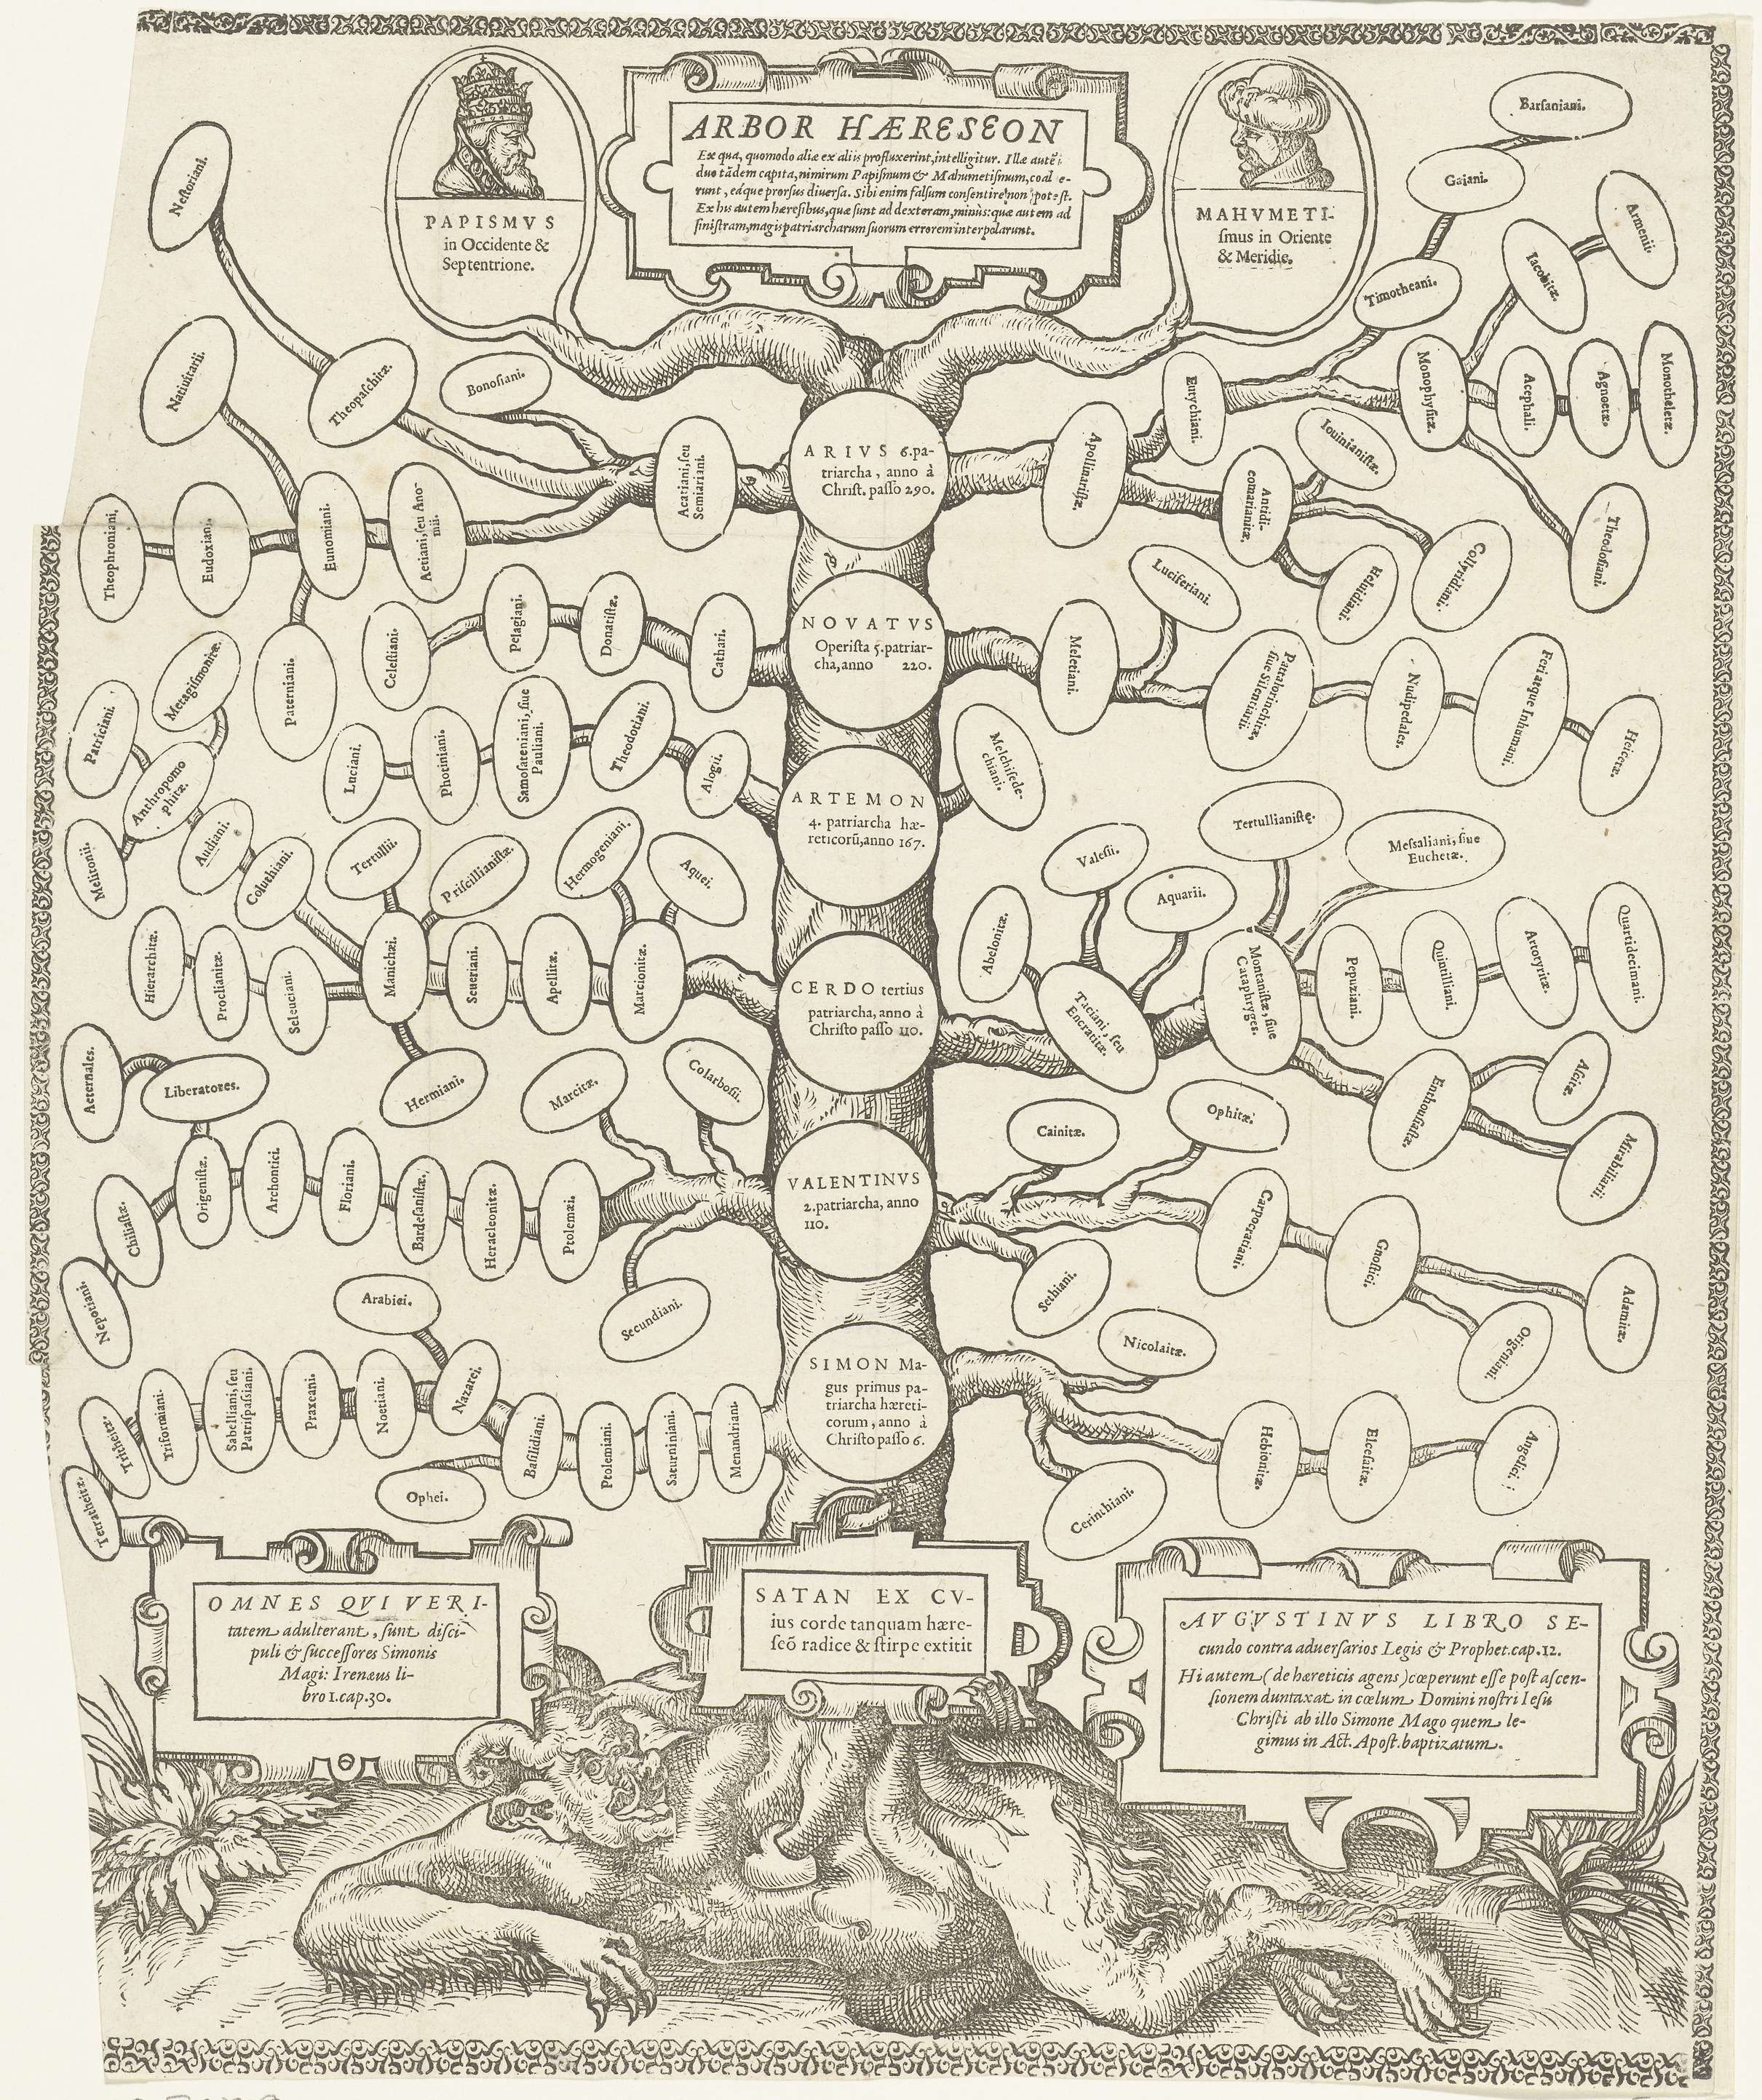 ARBOR HÆRESEON
Ex qua, quomodo aliæ ex aliis profluxerint, intelligitur. Illæ autē
duo tãdem capita, nimirum Papiſmum & Mahumetiſmum, coal e-
runt, eáque prorſus diuerſa. Sibi enim falſum conſentire non poteſt.
Ex his autem hæreſibus, quæ ſunt ad dexteram, minùs: quæ autem ad
ſiniſtram, magis patriarcharum ſuorum errorem interpolarunt.
PAPISMVS
in Occidente &
Septentrione.
MAHVMETI-
ſmus in Oriente
& Meridie.
Barſaniani.
Gaiani.
Armenii.
Iacobitæ.
Timotheani.
Neſtoriani.
Natiuitarii.
Theopaſchitæ.
Bonoſiani.
Acatiani, ſeu
Semiariani.
ARIVS 6. pa-
triarcha, anno à
Chriſt. paſſo 290.
Apollinariſtæ.
Eutychiani.
Iouinianiſtæ.
Monophyſitæ.
Acephali.
Agnoetæ.
Monotheletæ.
Theophroniani.
Eudoxiani.
Eunomiani.
Aetiani, ſeu Ano-
mii.
Antidi-
comarianitæ.
Heluidiani.
Collyridiani.
Theodoſiani.
Paterniani.
Celeſtiani.
Pelagiani.
Donatiſtæ.
Cathari.
NOVATVS
Operiſta 5. patriar-
cha, anno 220.
Meletiani.
Luciferiani.
Pattalorinchitæ,
ſiue Silentiarii.
Nudipedales.
Feriæque Inhumani.
Heicetæ.
Metagiſmonitæ.
Patriciani.
Anthropomo
phitæ.
Melitonii.
Audiani.
Coluthiani.
Luciani.
Photiniani.
Samoſateniani, ſiue
Pauliani.
Theodotiani.
Alogii.
ARTEMON
4. patriarcha hæ-
reticorũ, anno 167.
Melchiſede-
chiani.
Tertullii.
Priſcillianiſtæ.
Hermogeniani.
Aquei.
Valeſii.
Aquarii.
Tertullianiſtę.
Meſsaliani, ſiue
Euchetæ.
Hierarchitæ.
Proclianitæ.
Seleuciani.
Manichæi.
Seueriani.
Apellitæ.
Marcionitæ.
CERDO tertius
patriarcha, anno à
Chriſto paſſo 110.
Abelonitæ.
Taciani, ſeu
Encratitæ.
Montaniſtæ, ſiue
Cataphryges.
Pepuziani.
Quintilliani.
Artotyritæ.
Quartidecimani.
Aeternales.
Liberatores.
Hermiani.
Marcitæ.
Colarboſii.
Enthouſiaſtæ.
Aſcitæ.
Mirabiliarii.
Nepotiani.
Chiliaſtæ.
Origeniſtæ.
Archontici.
Floriani.
Bardeſaniſtæ.
Heracleonitæ.
Ptolemæi.
Secundiani.
VALENTINVS
2. patriarcha, anno
110.
Cainitæ.
Ophitæ.
Sethiani.
Carpocratiani.
Gnoſtici.
Adamitæ.
Origeniani.
Arabici.
Tetratheitæ.
Tritheitæ.
Triformiani.
Sabelliani, ſeu
Patripaſsiani.
Praxeani.
Noetiani.
Nazarei.
Ophei.
Baſilidiani.
Ptolemiani.
Saturniniani.
Menandriani.
SIMON Ma-
gus primus pa-
triarcha hæreti-
corum, anno à
Chriſto paſſo 6.
Nicolaitæ.
Cerinthiani.
Hebionitæ.
Elceſaitæ.
Angelici.
OMNES QVI VERI-
tatem adulterant, ſunt diſci-
puli & ſucceſſores Simonis
Magi: Irenæus li-
bro 1. cap. 30.
SATAN EX CV-
ius corde tanquam hære-
ſeõ radice & ſtirpe extitit
AVGVSTINVS LIBRO SE-
cundo contra aduerſarios Legis & Prophet. cap. 12.
Hi autem (de hæreticis agens) cœperunt eſſe poſt aſcen-
ſionem duntaxat in cœlum Domini noſtri Ieſu
Chriſti ab illo Simone Mago quem le-
gimus in Act. Apoſt. baptizatum.